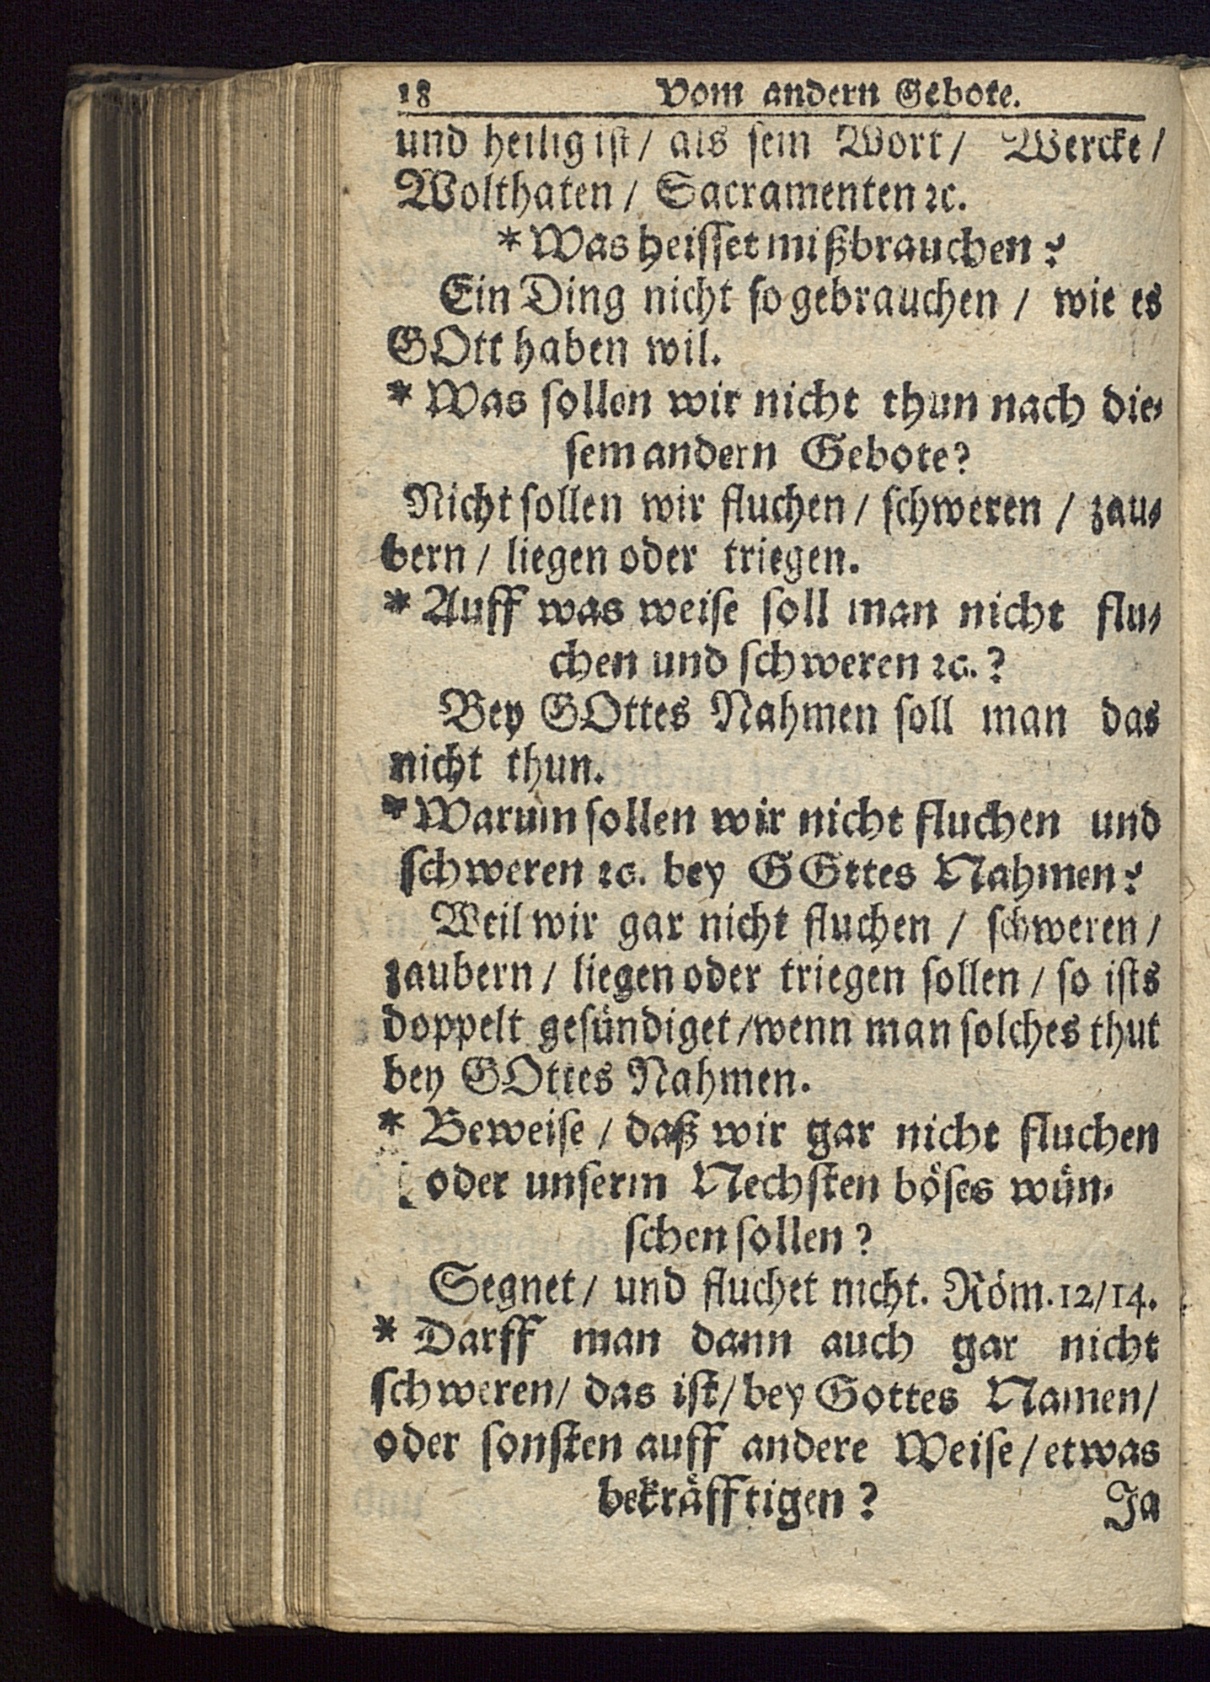 18 Vom andern Gebote.
und heilig ist / als sein Wort / Wercke /
Wolthaten / Sacramenten ꝛc.
* Was heisset mißbrauchen?
Ein Ding nicht so gebrauchen / wie es
GOtt haben wil.
* Was sollen wir nicht thun nach die-
sem andern Gebote?
Nicht sollen wir fluchen / schweren / zau-
bern / liegen oder triegen.
* Auff was weise soll man nicht flu-
chen und schweren ꝛc.?
Bey GOttes Nahmen soll man das
nicht thun.
* Warum sollen wir nicht fluchen und
schweren ꝛc. bey GOttes Nahmen?
Weil wir gar nicht fluchen / schweren /
zaubern / liegen oder triegen sollen / so ists
doppelt gesündiget / wenn man solches thut
bey GOttes Nahmen.
* Beweise / daß wir gar nicht fluchen
oder unserm Nechsten böses wün-
schen sollen?
Segnet / und fluchet nicht. Röm. 12/14.
* Darff man dann auch gar nicht
schweren / das ist / bey Gottes Namen /
oder sonsten auff andere Weise / etwas
bekräfftigen? Ja